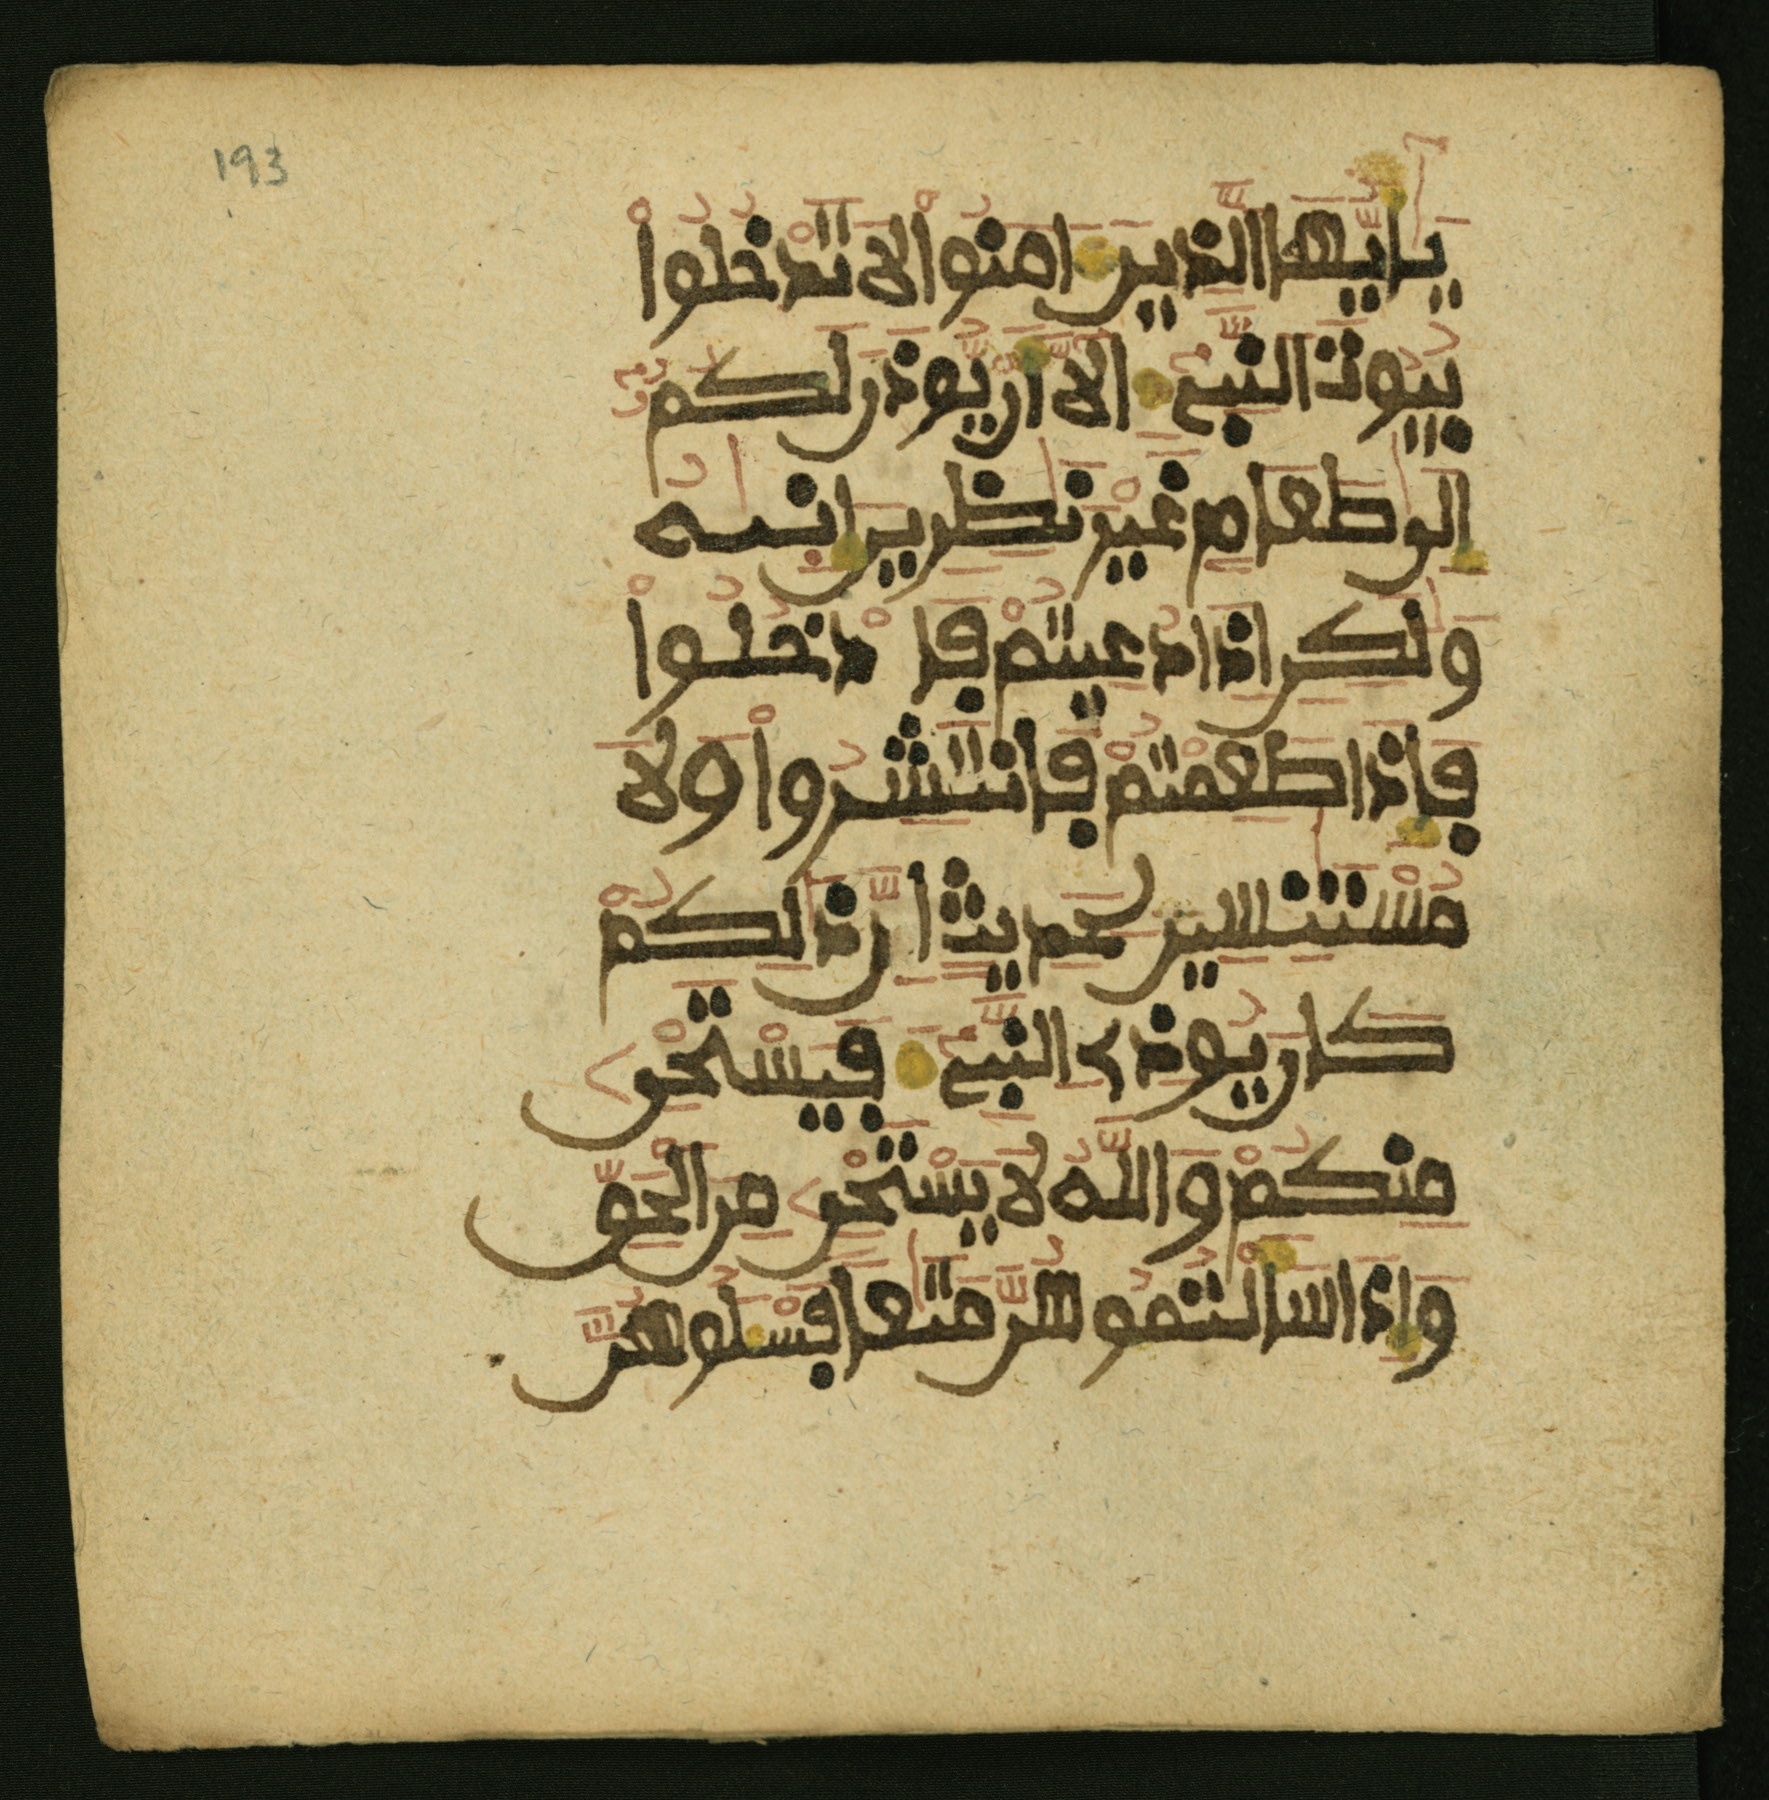 193
يٰأيّها الّذين ءامنوا لا تدخلوا
بيوت النبيء الا ان يوذن لكم
الى طعام غير نٰظرين انيه
ولٰكن اذا دعيتم فادخلوا
فإذا طعمتم فانتشروا ولا
مستٰنسين لحديث ان ذٰلكم
كان يوذے النبيء فيستحى
منكم والله لا يستحى من الحق
وإذا سألتموهن متٰعا فسلوهن